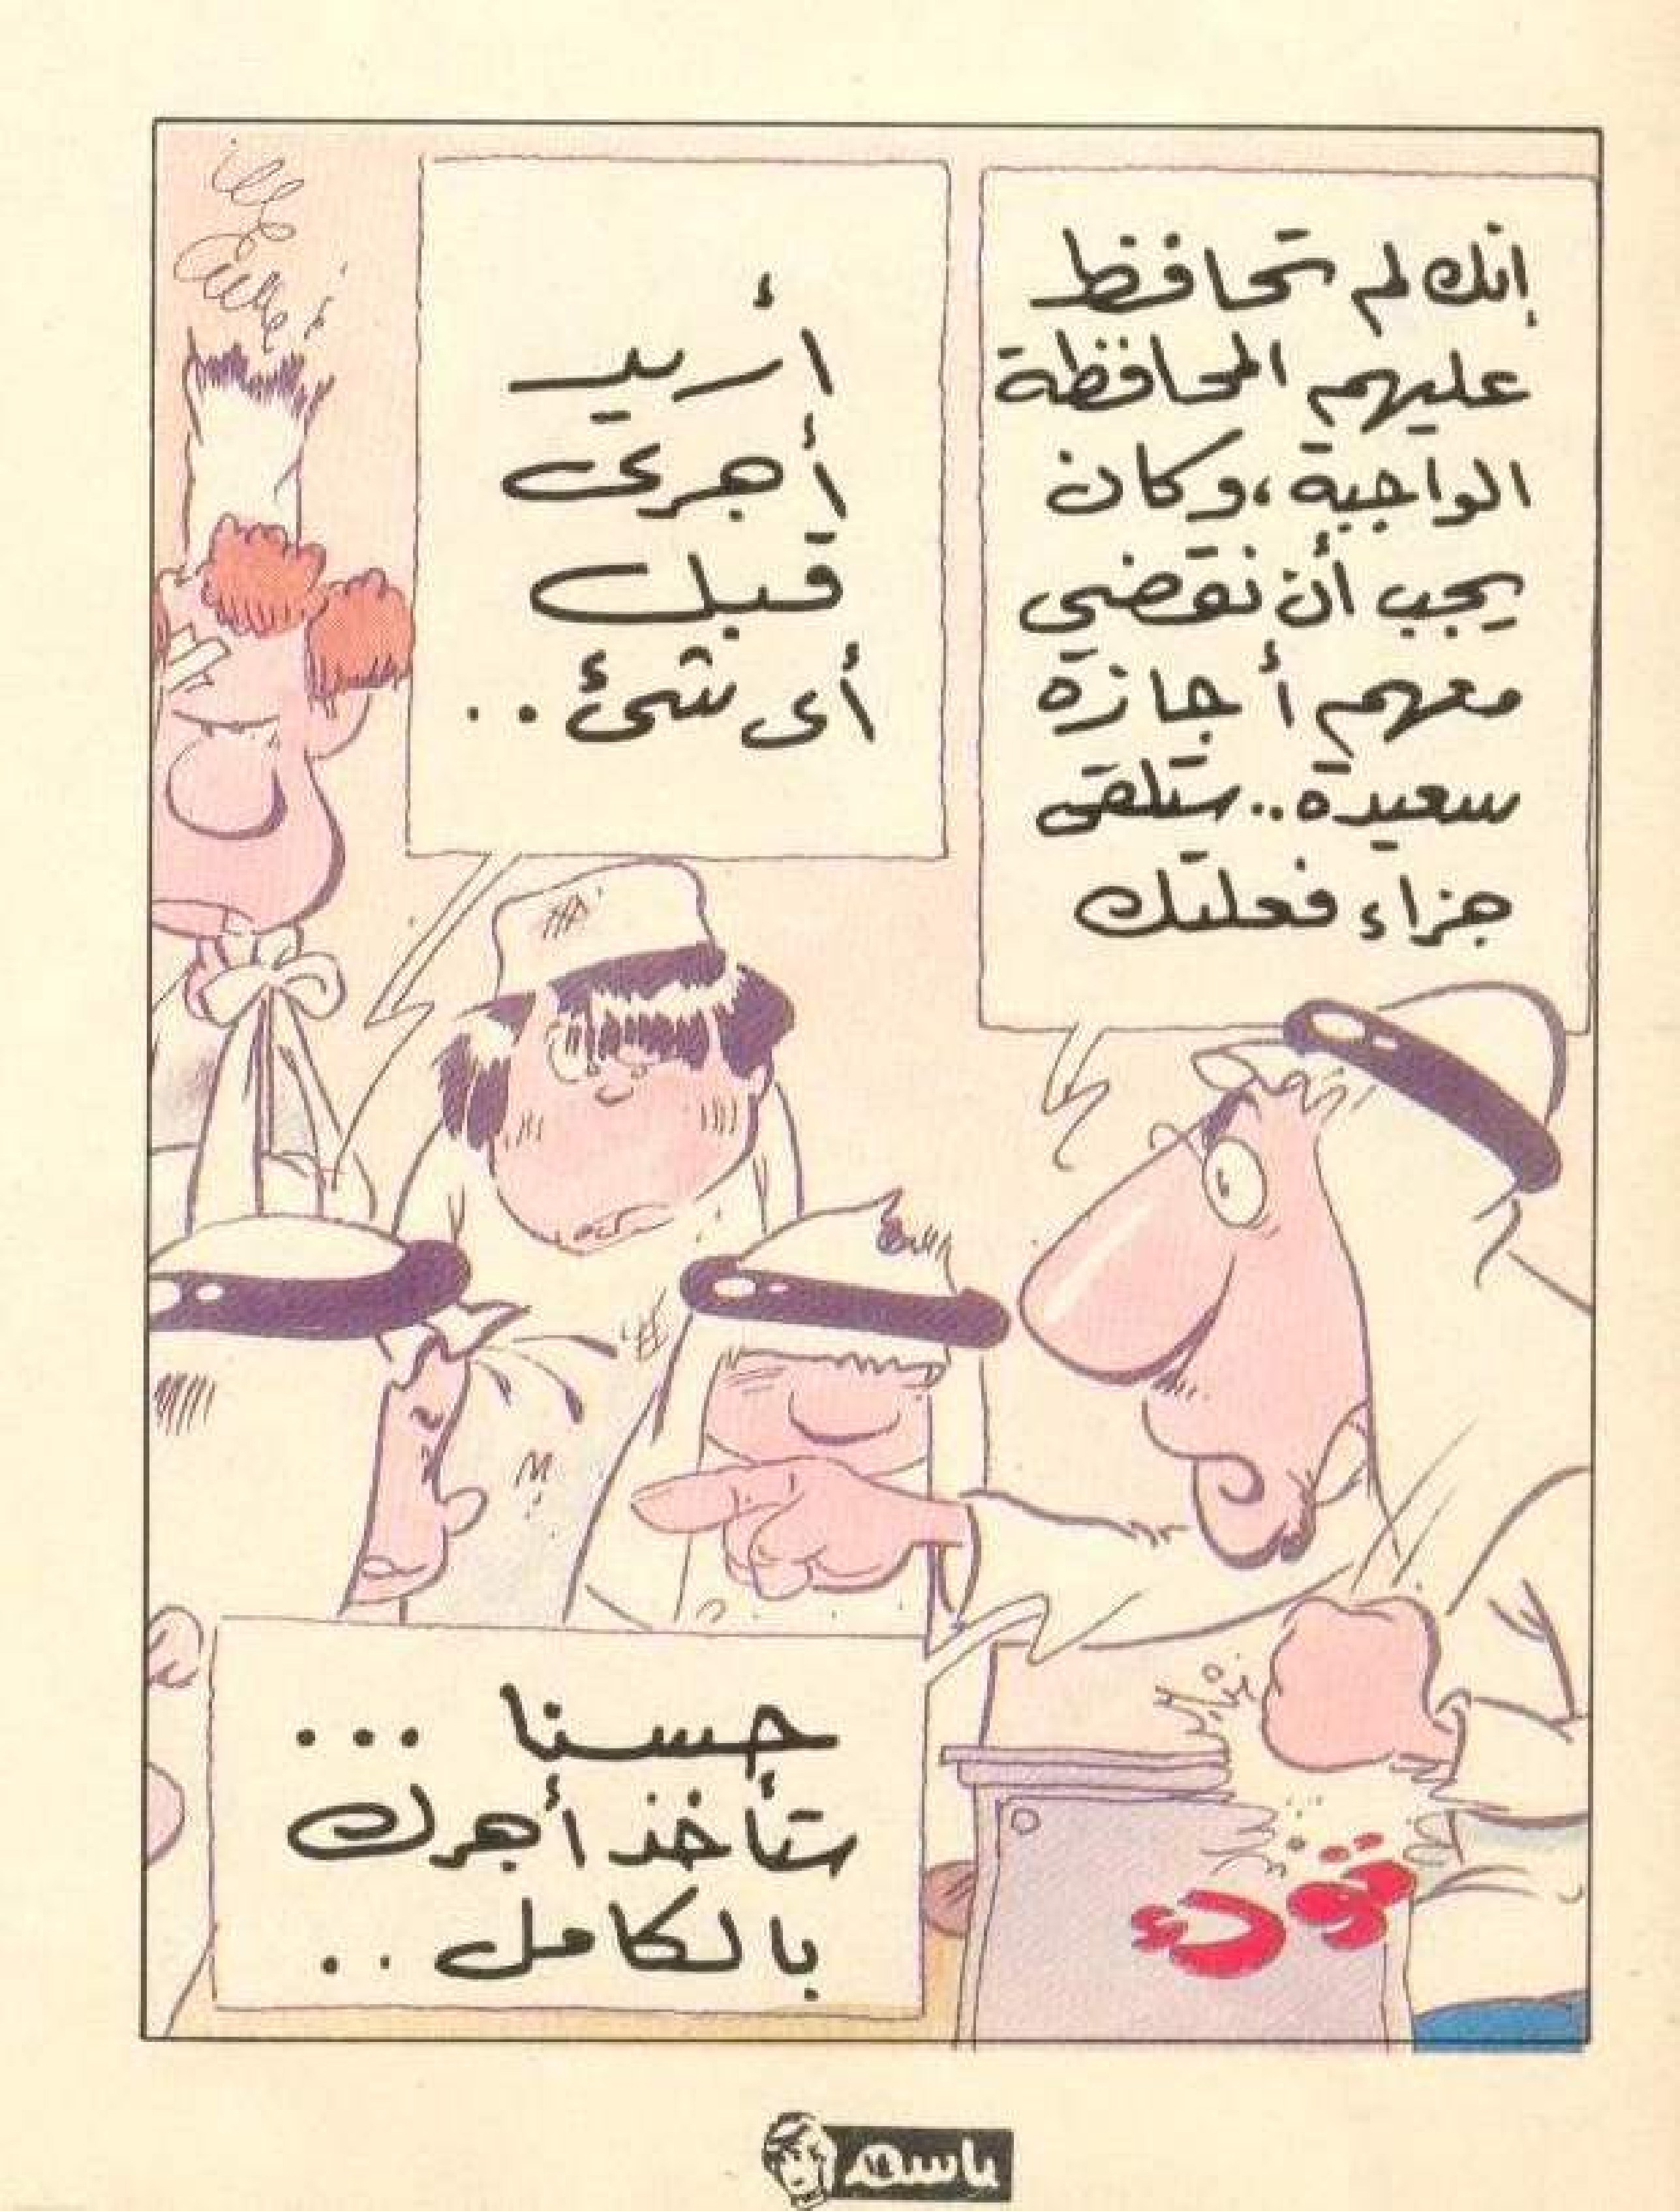 إنك لم تحافظ
عليهم المحافظة
الواجبة، وكان
يجب أن نقضي
معهم أجازة
سعيدة.. ستلقى
جزاء فعلتك
أريد
أجرى
قبل
أى شئ..
حسنا ...
ستأخذ أجرك
بالكامل..
باسم